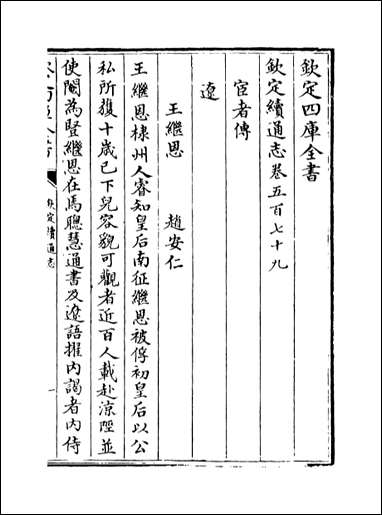 欽定四庫全書
欽定續通志卷五百七十九
宦者傳
遼
王繼恩　趙安仁
王繼恩棣州人睿知皇后南征繼恩被俘初皇后以公
私所獲十歲已下兒容貌可觀者近百人載赴涼陘並
使閹為豎繼恩在焉聰慧通書及遼語擢內謁者內侍
欽定續通志
一